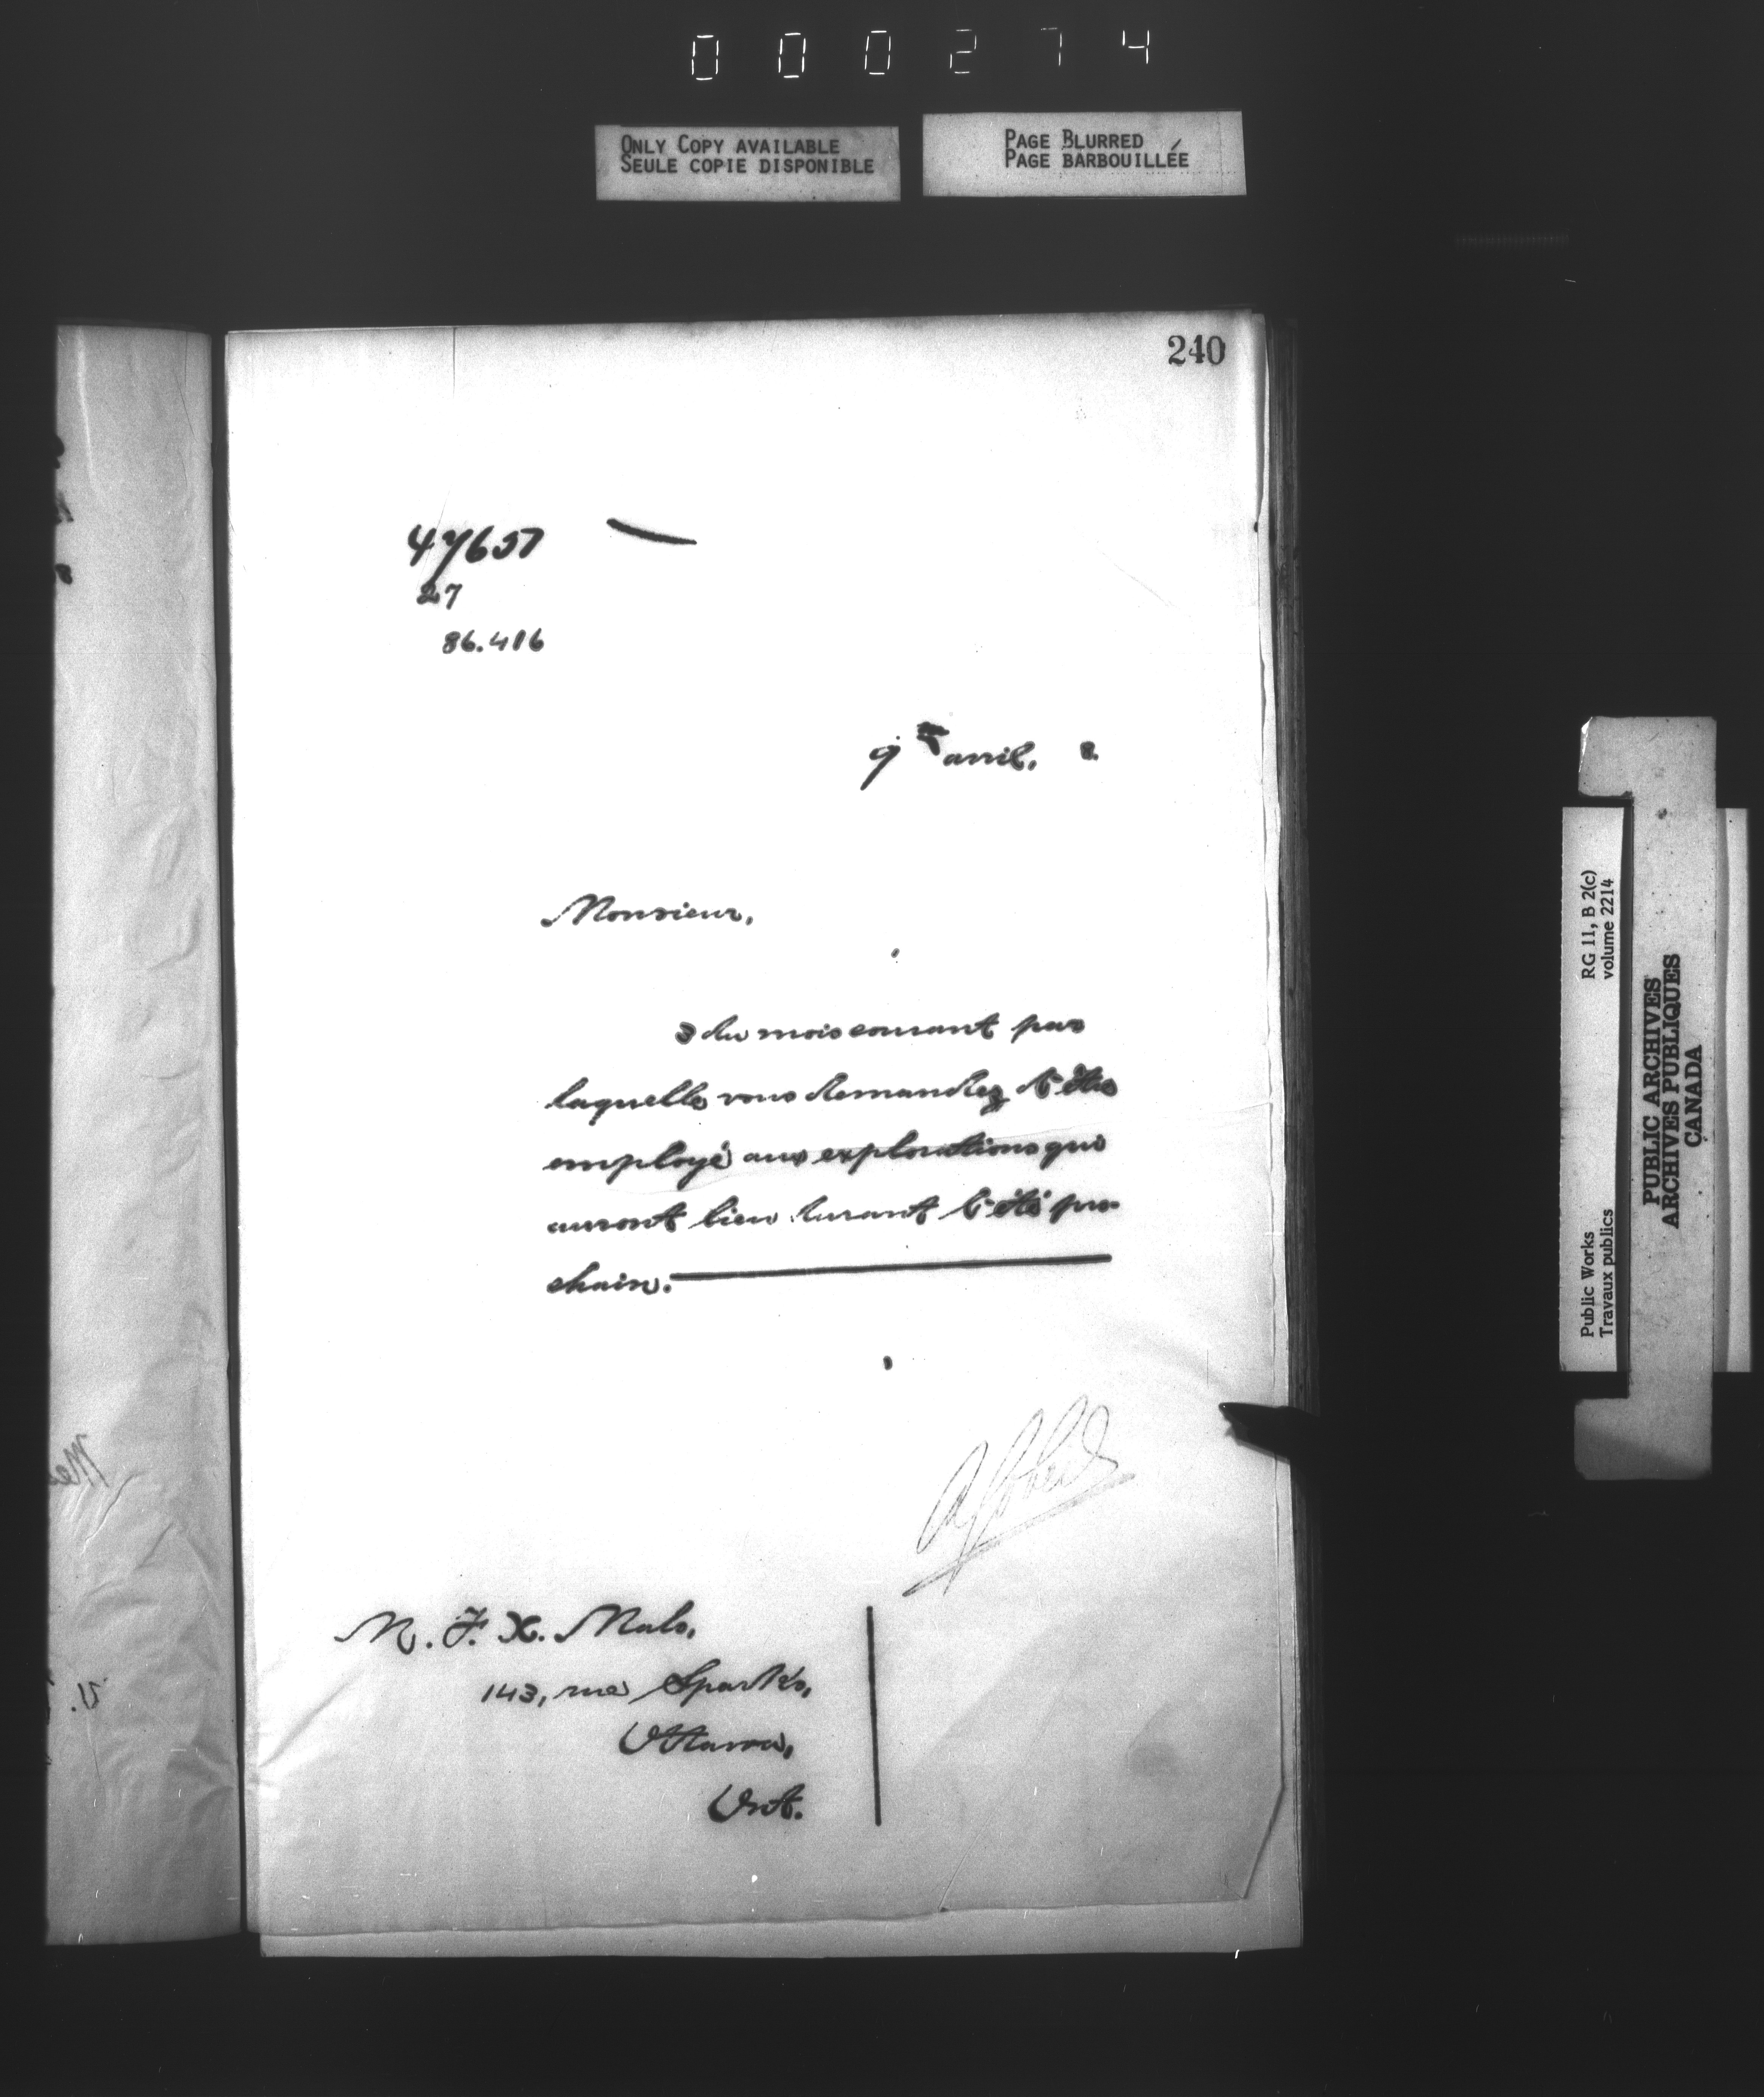 000274
ONLY COPY AVAILABLE
SEULE COPIE DISPONIBLE
PAGE BLURRED
PAGE BARBOUILLÉE
240
47657
27
86.416
9 avril, 8.
Monsieur,
3 du mois courant par
laquelle vous demandez d'être
employé aux explorations qui
auront lieu durant l'été pro-
chain.
M. F. X. Malo,
143, rue Sparks,
Ottawa,
Ont.
RG 11, B 2(c)
volume 2214
Public Works
Travaux publics
PUBLIC ARCHIVES
ARCHIVES PUBLIQUES
CANADA